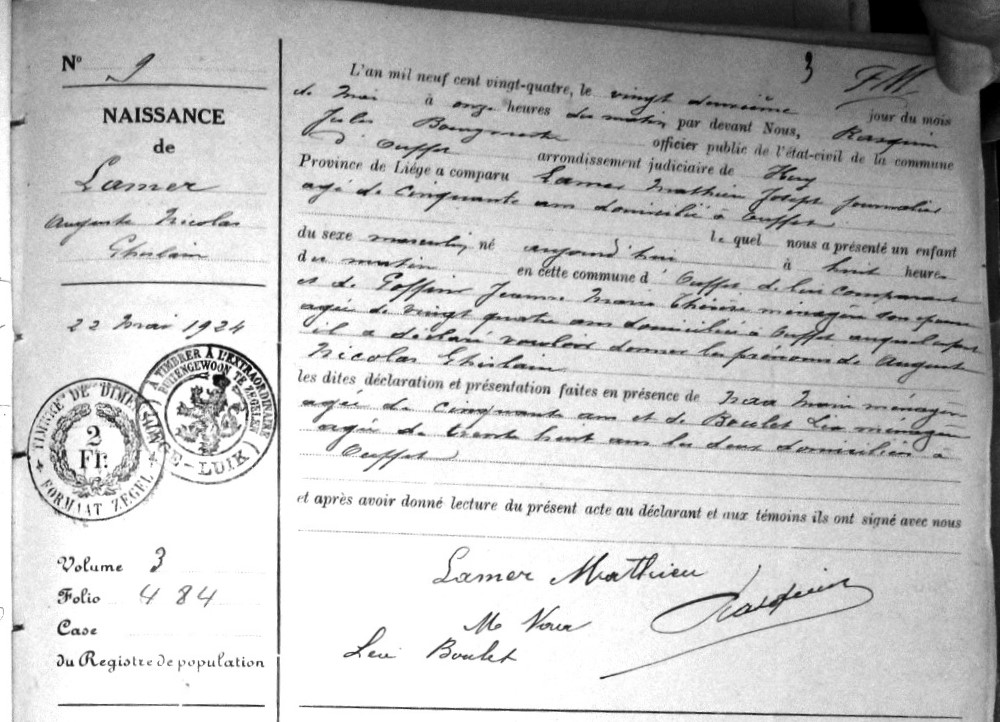 N° 9
NAISSANCE
de
Lamer
Auguste Nicolas
Ghislain
22 Mai 1924
TIMBRE DE DIMENSION
2
Fr.
FORMAAT ZEGEL
A TIMBRER À L'EXTRAORDINAIRE
BUITENGEWOON TE ZEGELEN
E-LUIK)
Volume 3
Folio 484
Case
du Registre de population
3 FM
L'an mil neuf cent vingt-quatre, le vingt deuxième jour du mois
de Mai à onze heures du matin par devant Nous, Rasquin
Jules Bourgmestre officier public de l'état-civil de la commune
d' Ouffet arrondissement judiciaire de Huy
Province de Liége a comparu Lamer Mathieu Joseph journalier
agé de cinquante ans domicilié à Ouffet
le quel nous a présenté un enfant
du sexe masculin, né aujourd'hui à huit heures
du matin en cette commune d' Ouffet de lui comparant
et de Goffin Jeanne Marie Thérèse ménagère son épouse
agée de vingt quatre ans domiciliée à Ouffet auquel
il a déclaré vouloir donner les prénoms de August
Nicolas Ghislain
les dites déclaration et présentation faites en présence de ménagère
agée de cinquante ans et de Boulet Léa ménagère
agée de trente huit ans les deux domiciliées à
Ouffet
et après avoir donné lecture du présent acte au déclarant et aux témoins ils ont signé avec nous
Lamer Mathieu
Rasquin
M
Boulet